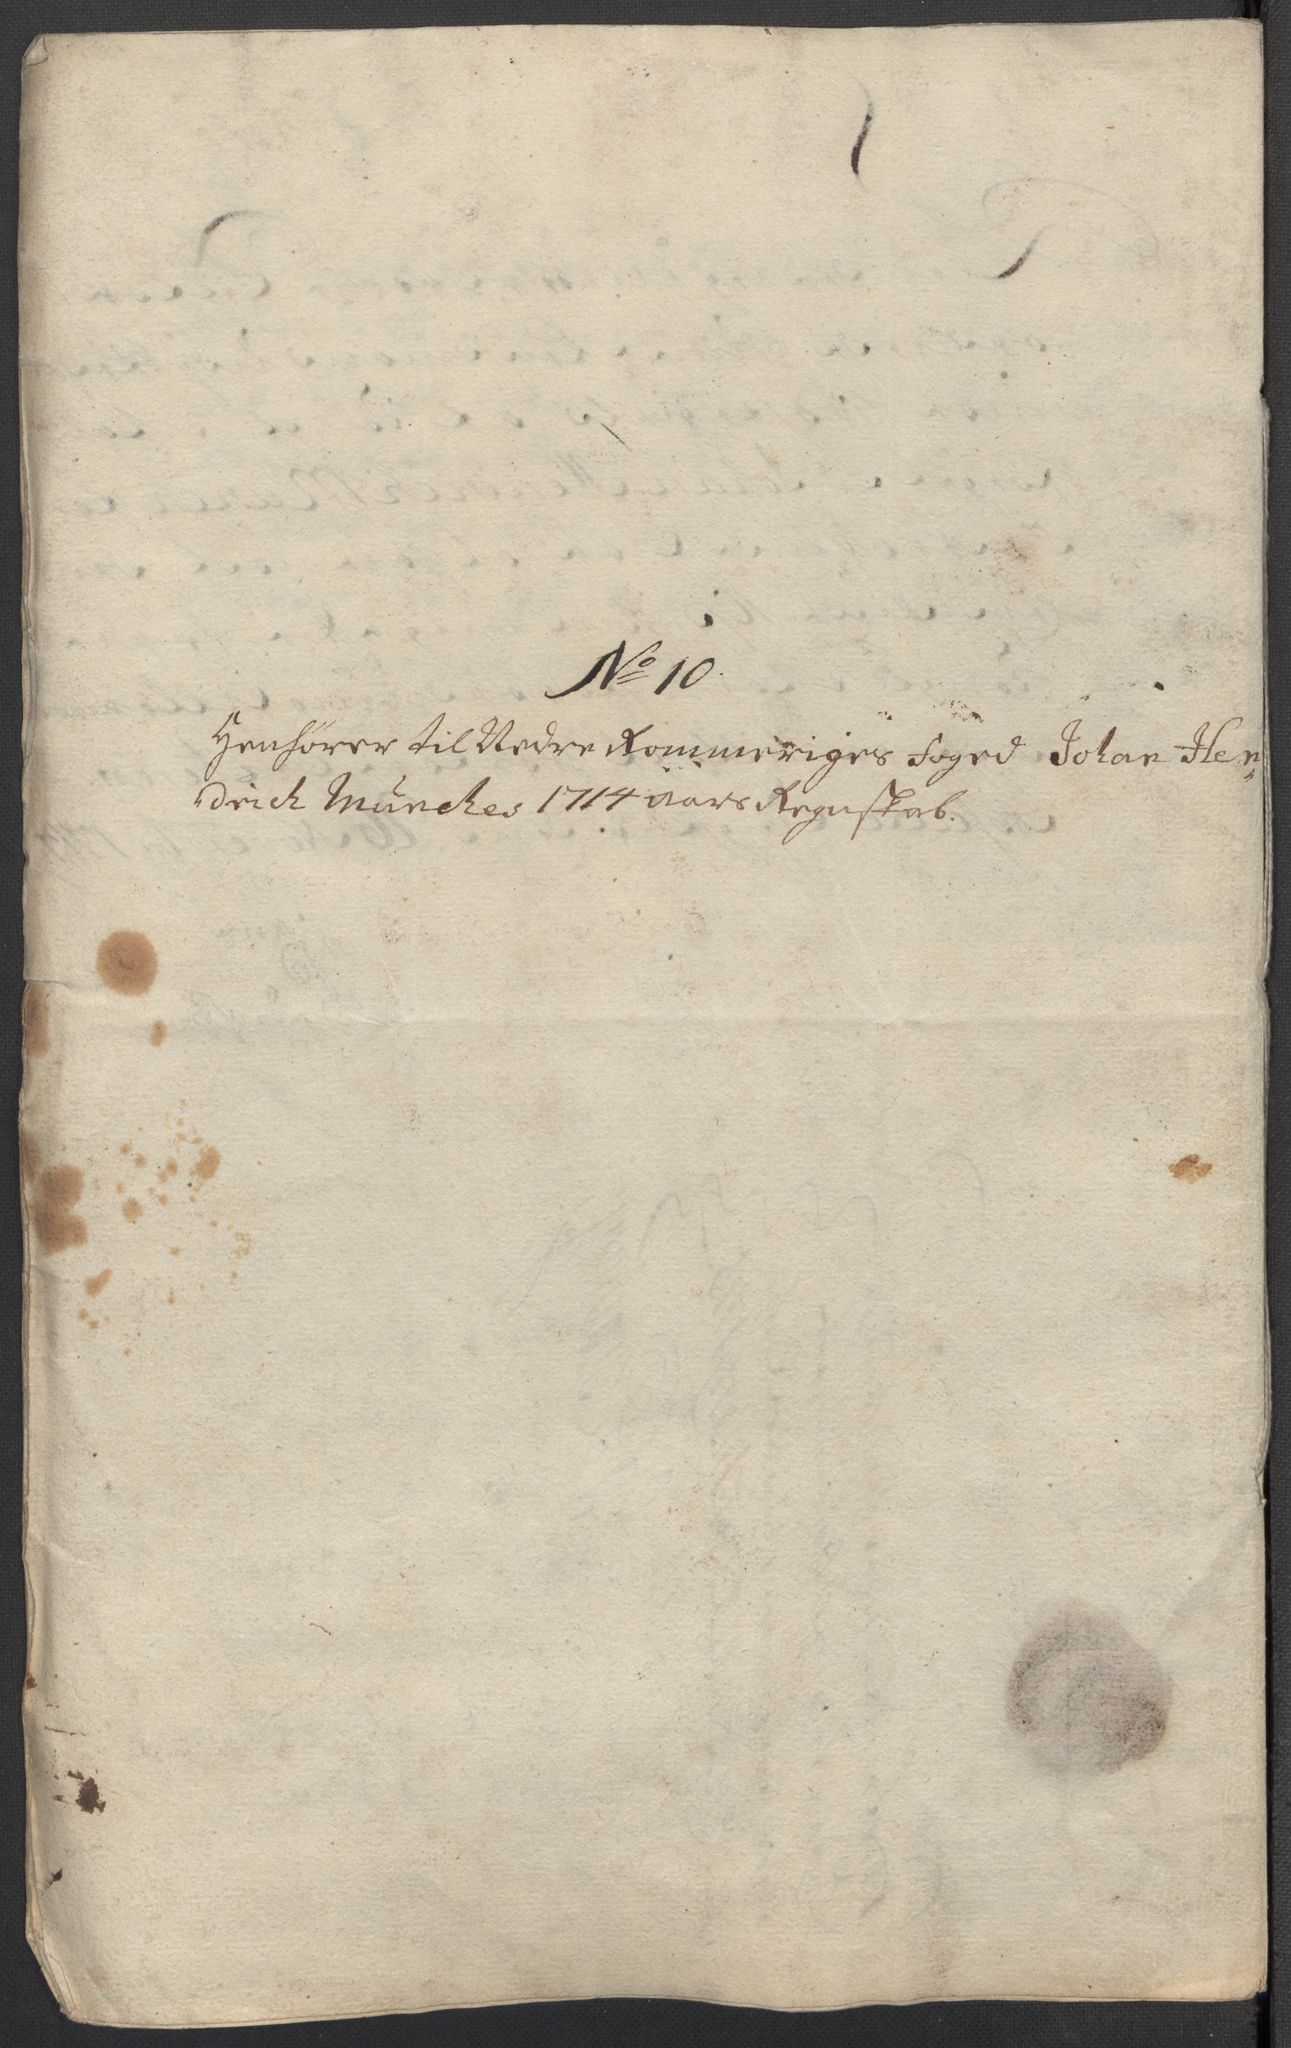 No 10.
Henhører til Nedre Rommeriges Foged Johan Hen-
drich Munches 1714 aars Regnskab.